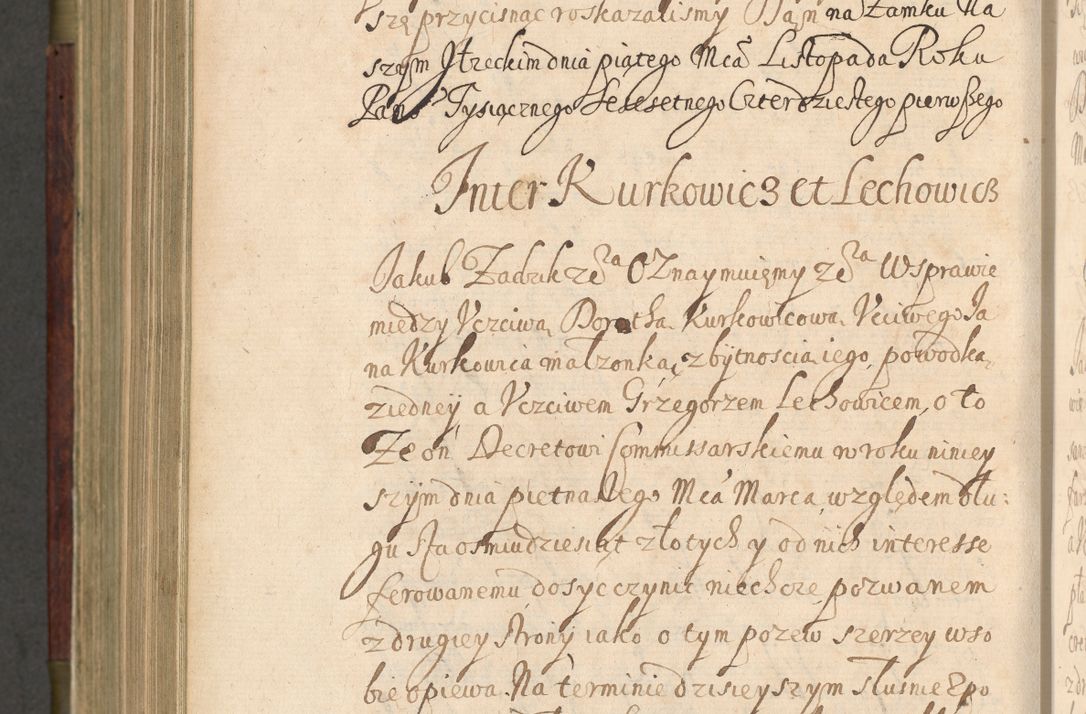 szę przycisnąc roskazalismy Dąn na Zamku Na
szym Jłzeckim dnia piątego Mca Listopada Roku
Panś Tysiącznego Szesetnego Czterdziestego pierwszego
Inter Kurkowicz et Lechowicz
Jakub Zadzik zẽa Oznaymuięmy zẽa W sprawie
miedzy Vczciwą Dorothą Kurkowicową Vcciwego Ja
na Kurkowica małzonką, z bytnoscią iego, powodką
z iedneÿ a Vczciwem Grzegorzem Lechowicem, o to
Ze on Decretowi Commissarskiemu w roku niniey
szÿm dnia piętnastego Mca Marca, względem dłu:
gu sta osmiudziesiąt złotych y od nich interesse
ferowanemu dosyc czynic niechce pozwanem
z drugiey strony iako o tym pozew szerzey w so
bie opiewa. Na terminie dzisieyszym słusnie z po